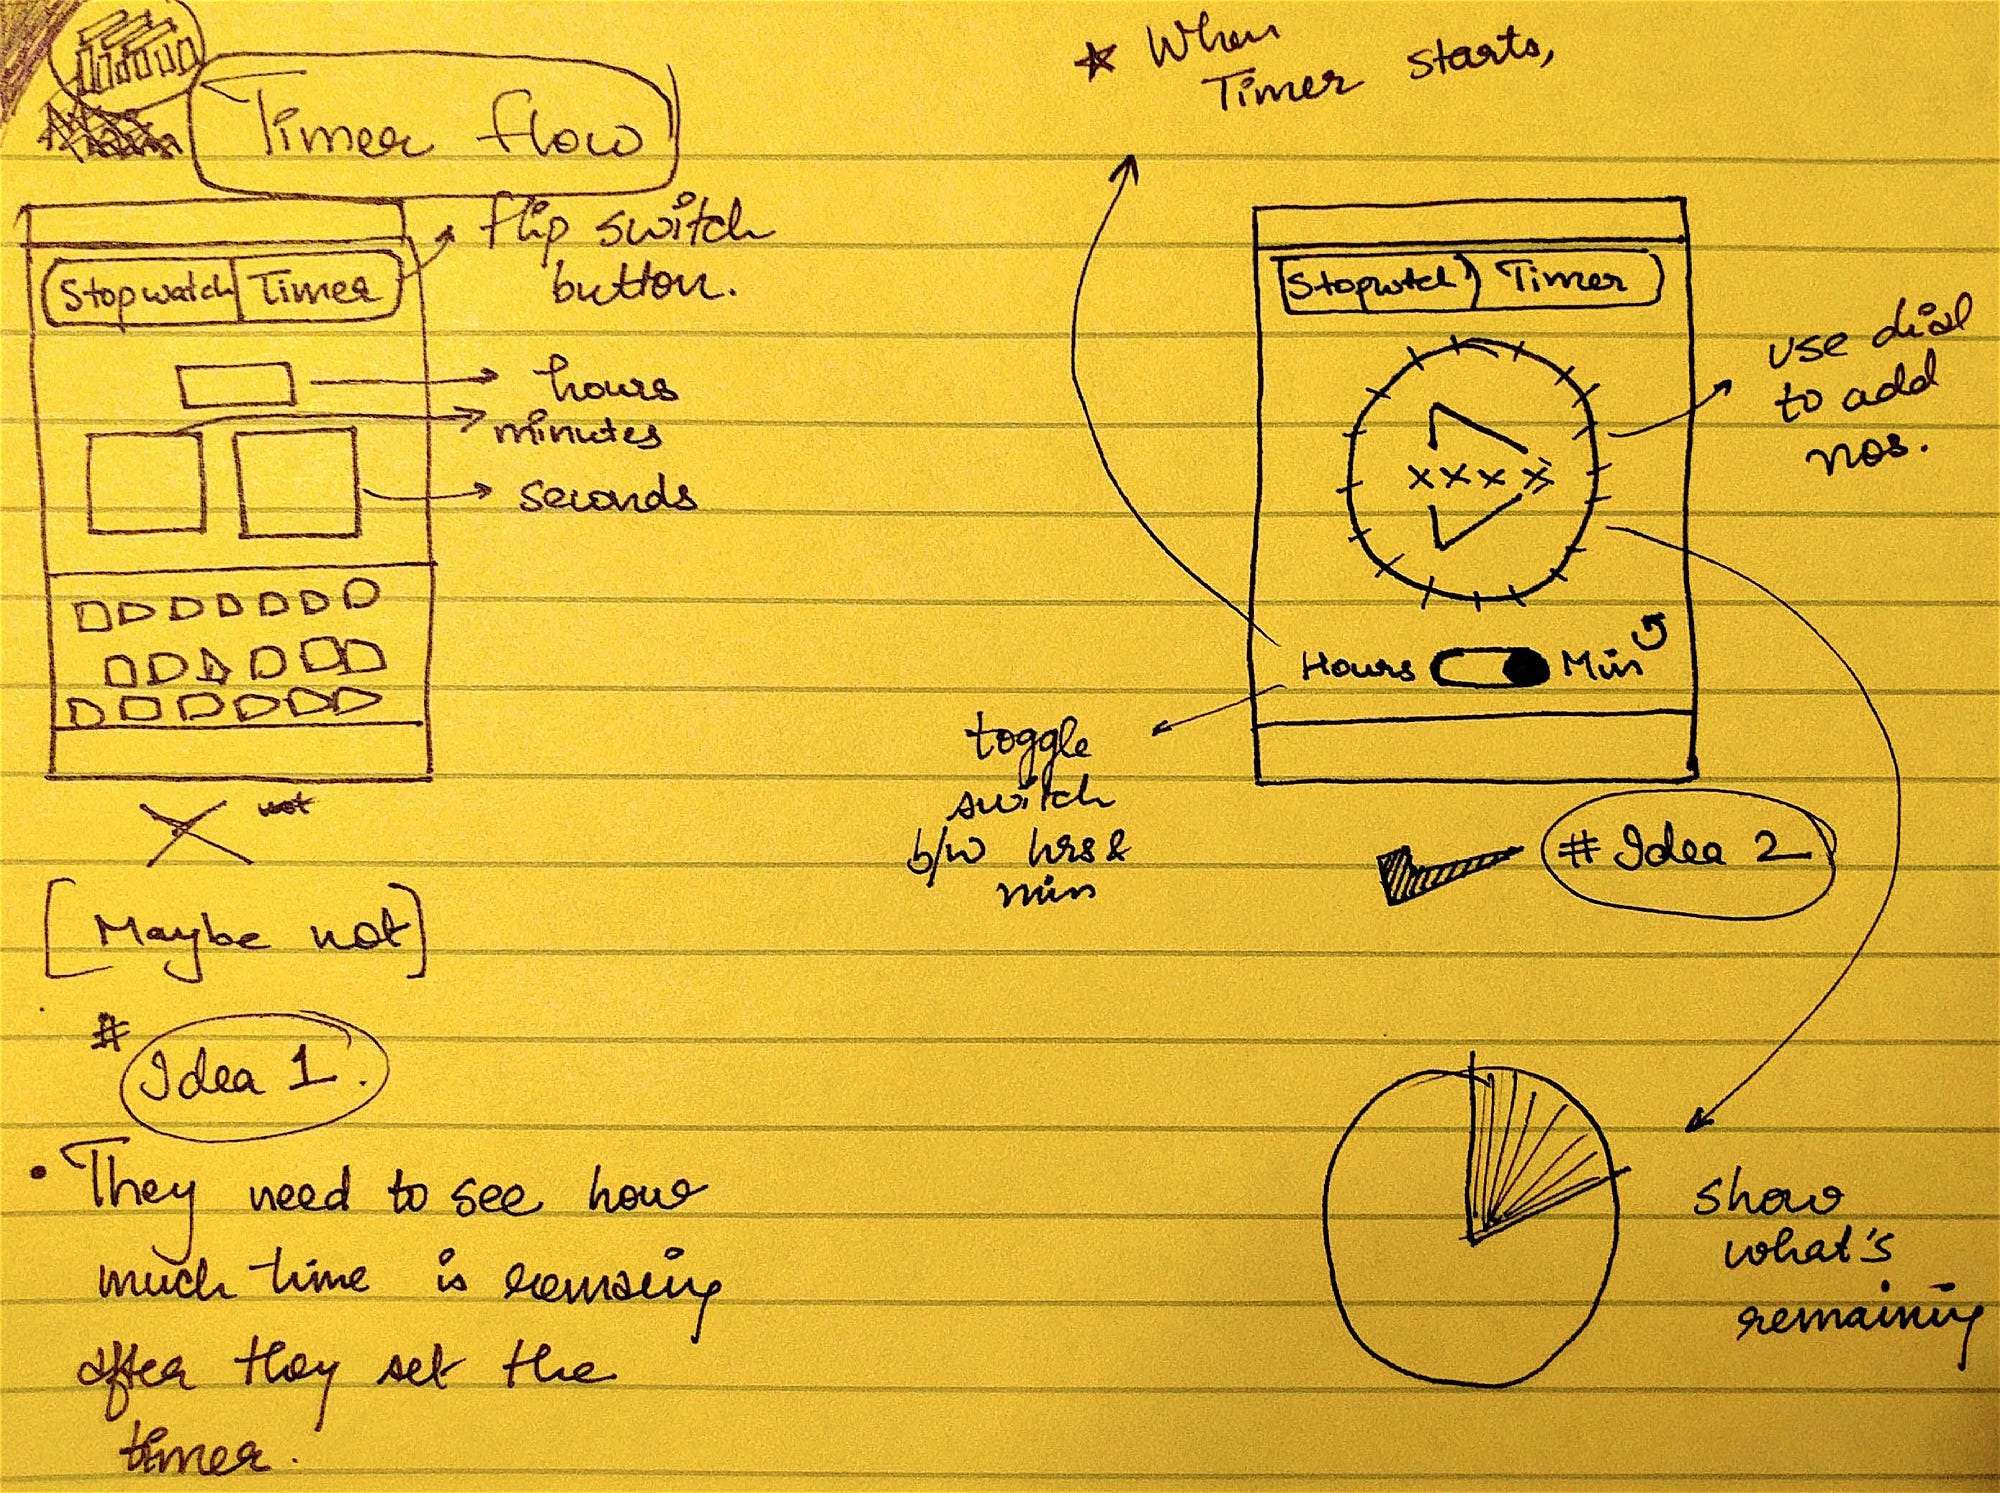 Timer flow
flip switch
button.
Stopwatch Timer
hours
minutes
seconds
not
[Maybe not]
#
Idea 1.
• They need to see how
much time is remaing
after they set the
timer.
★ When
Timer starts,
Stopwtch Timer
use dial
to add
nos.
xxxx
Hours Min
toggle
switch
b/w hrs &
min
# Idea 2
show
what's
remaining